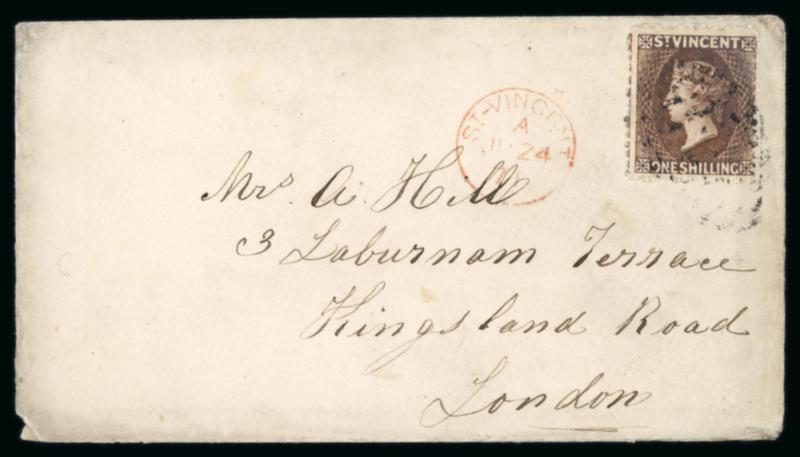 ST VINCENT
ONE SHILLING
ST-VINCENT
A
24
Mrs A. Hill
3 Laburnam Terrace
Kingsland Road
London